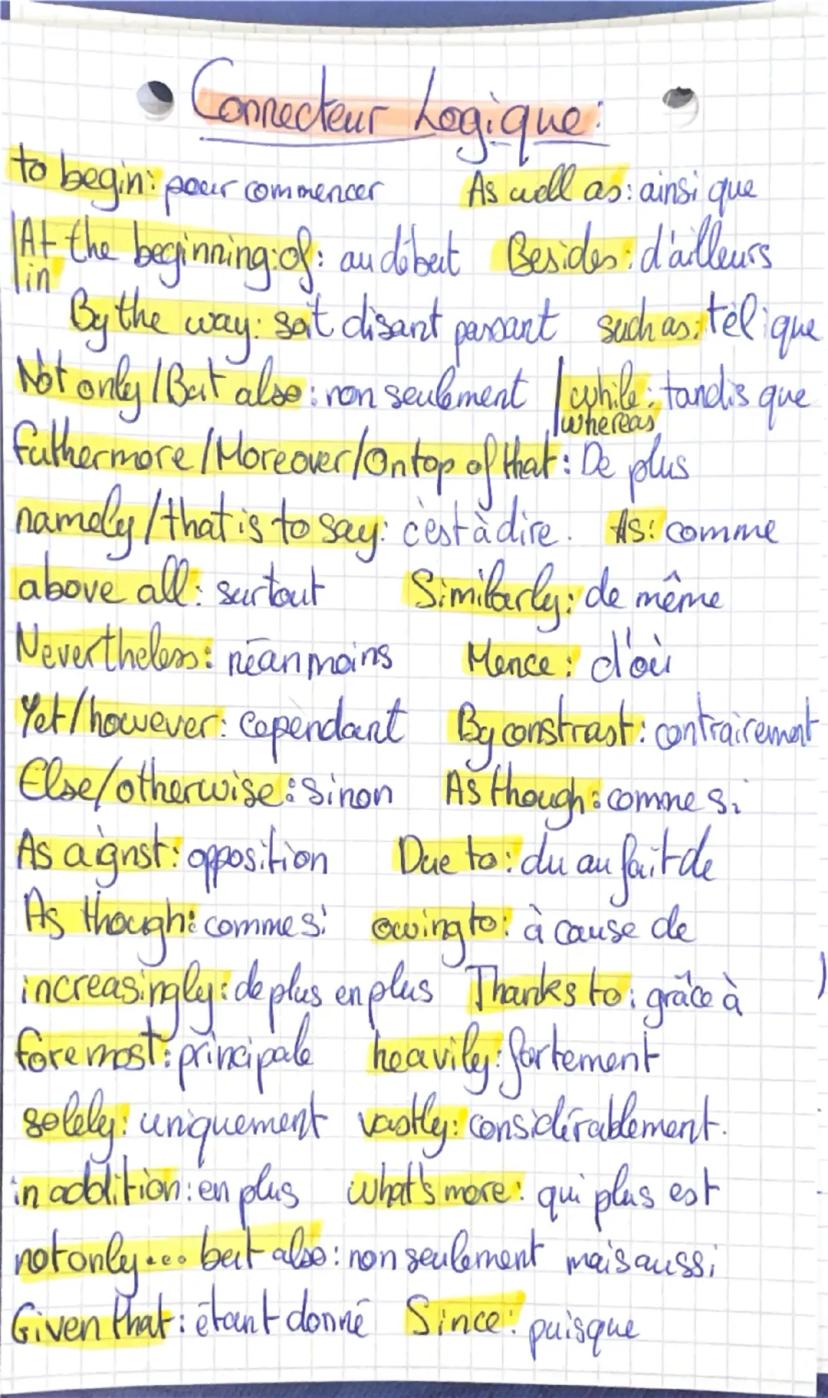 Connecteur Logique:
to begin: pour commencer As well as: ainsi que
At the beginning: of: au début Besides: d'ailleurs
in
By the way: soit disant passant such as: tel que
Not only/But also: non seulement while: tandis que
whereas
futhermore/Moreover/On top of that: De plus
namely/that is to say: c'est à dire. As: comme
above all: surtout Similarly: de même
Nevertheless: néanmoins Hence: d'où
Yet/however: cependant By constrast: contrairement
Else/otherwise: sinon As though: comme si
As aignst: opposition Due to: du au fait de
As though: comme si owing to: à cause de
increasingly: de plus en plus Thanks to: grâce à
foremost: principale heavily: fortement
solely: uniquement vastly: considérablement.
in addition: en plus what's more: qui plus est
not only... but also: non seulement mais aussi
Given that: étant donné Since: puisque